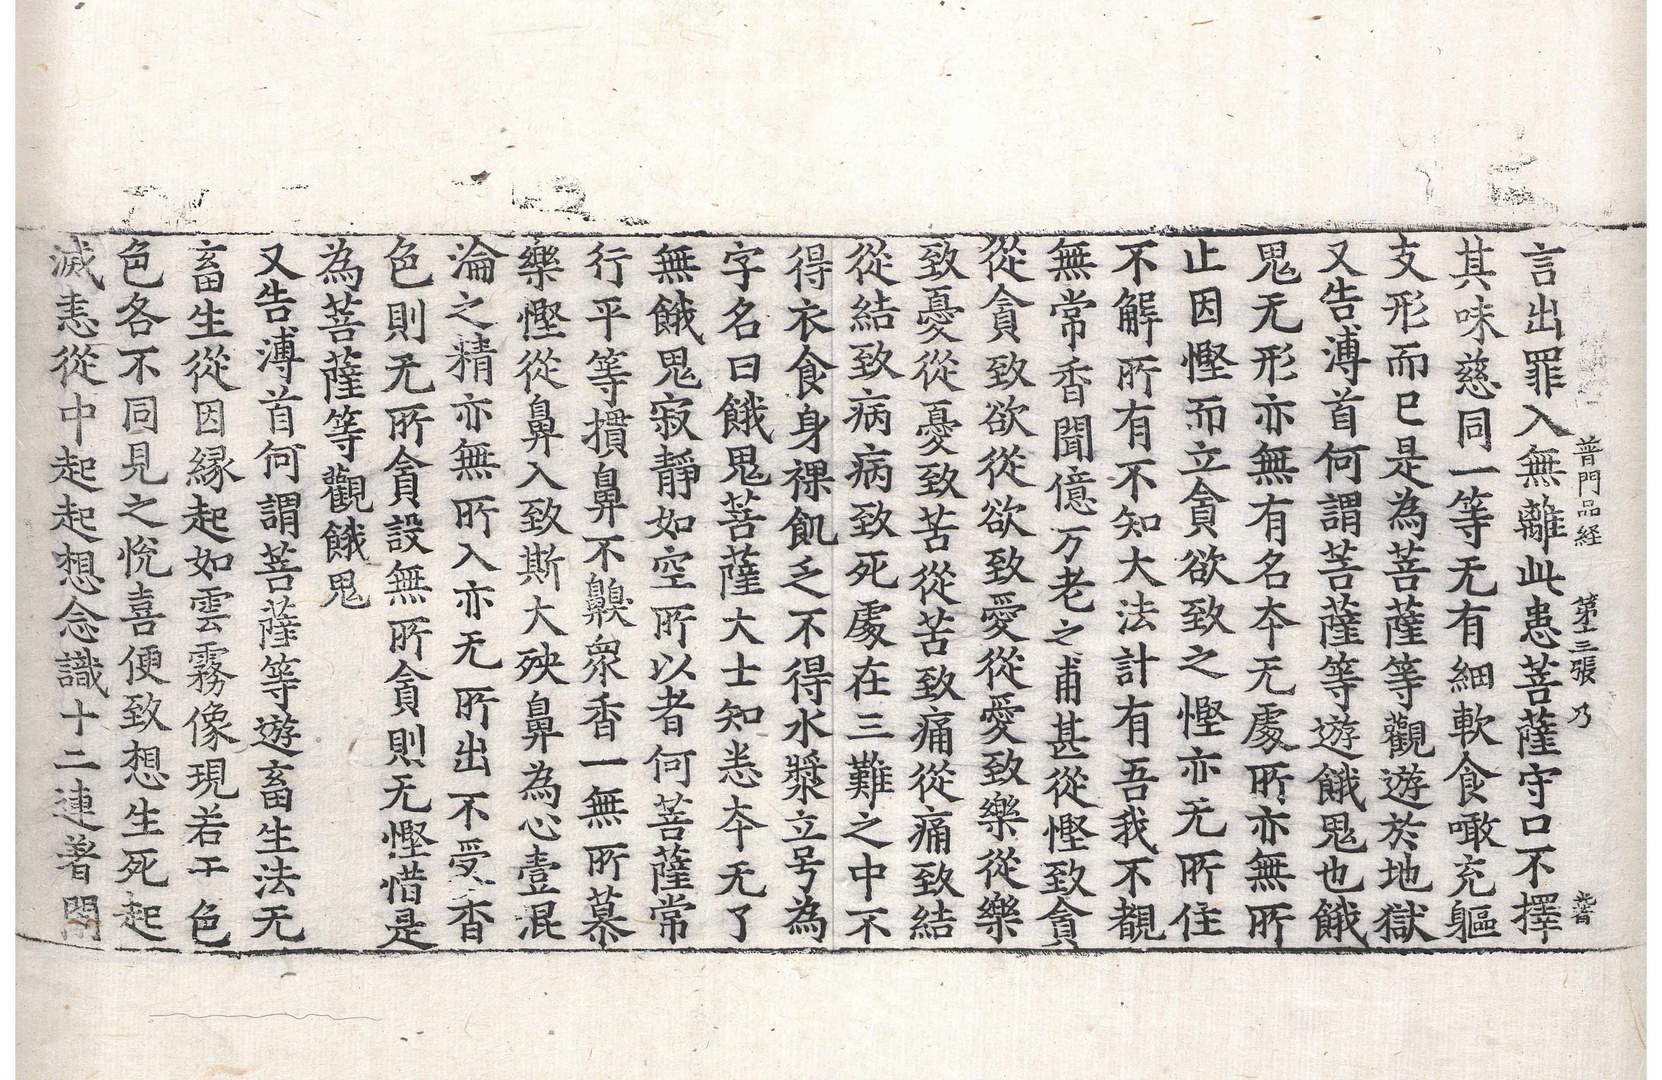 普門品経 第十三張 乃
言出罪入無離此患菩薩守口不擇
其味慈同一等无有細軟食噉充軀
支形而已是為菩薩等觀遊於地獄
又告溥首何謂菩薩等遊餓鬼也餓
鬼无形亦無有名夲无處所亦無所
止因慳而立貪欲致之慳亦无所住
不解所有不知大法計有吾我不覩
無常香聞億万老之甫甚從慳致貪
從貪致欲從欲致愛從愛致樂從樂
致憂從憂致苦從苦致痛從痛致結
從結致病病致死處在三難之中不
得衣食身裸飢乏不得水漿立号為
字名曰餓鬼菩薩大士知恚夲无了
無餓鬼寂靜如空所以者何菩薩常
行平等摜鼻不齅衆香一無所慕
樂慳從鼻入致斯大殃鼻為心壹混
淪之精亦無所入亦无所出不受香
色則无所貪設無所貪則无慳惜是
為菩薩等觀餓鬼
又告溥首何謂菩薩等遊畜生法无
畜生從因縁起如雲霧像現若干色
色各不同見之悅喜便致想生死起
滅恚從中起起想念識十二連著閇